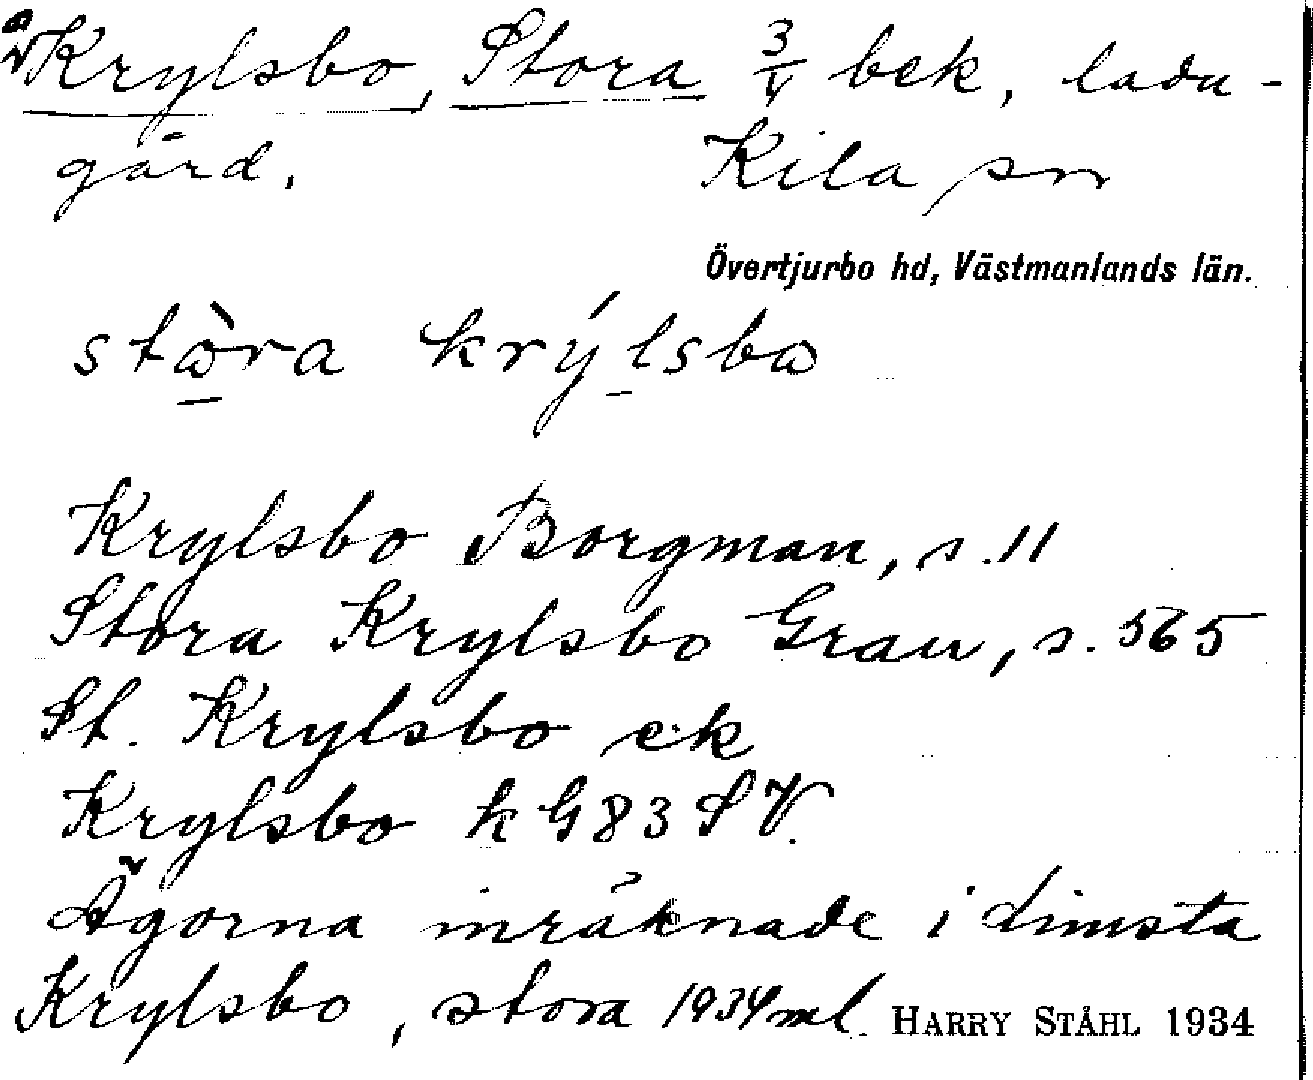 Krylsbo, Stora 3/4 bek, ladu-
gård. Kila sn
Övertjurbo hd, Västmanlands län.
stòra krýlsbo
Krylsbo Borgman, s. 11
Stora Krylsbo Grau, s. 565
St. Krylsbo ek
Krylsbo k G 83 SV.
Ägorna inräknade i Limsta
Krylsbo, stora 1934 ml HARRY STÅHL 1934